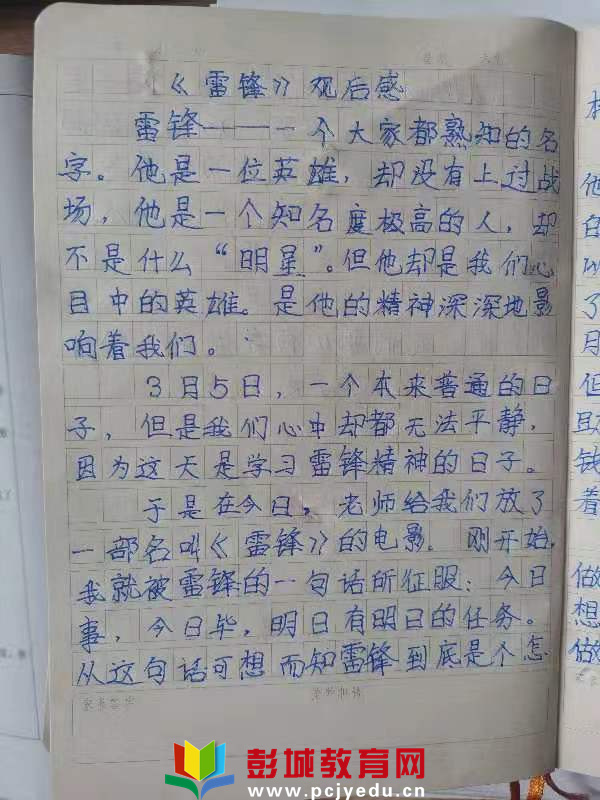 《雷锋》观后感
雷锋———一个大家都熟知的名
字。他是一位英雄,却没有上过战
场,他是一个知名度极高的人,却
不是什么“明星”。但他却是我们心
目中的英雄。是他的精神深深地影
响着我们。
3月5日,一个本来普通的日
子,但是我们心中却都无法平静,
因为这天是学习雷锋精神的日子。
于是在今日,老师给我们放了
一部名叫《雷锋》的电影。刚开始,
我就被雷锋的一句话所征服:今日
事,今日毕,明日有明日的任务。
从这句话可想而知雷锋到底是个怎
彭城教育网
www.pcjyedu.cn